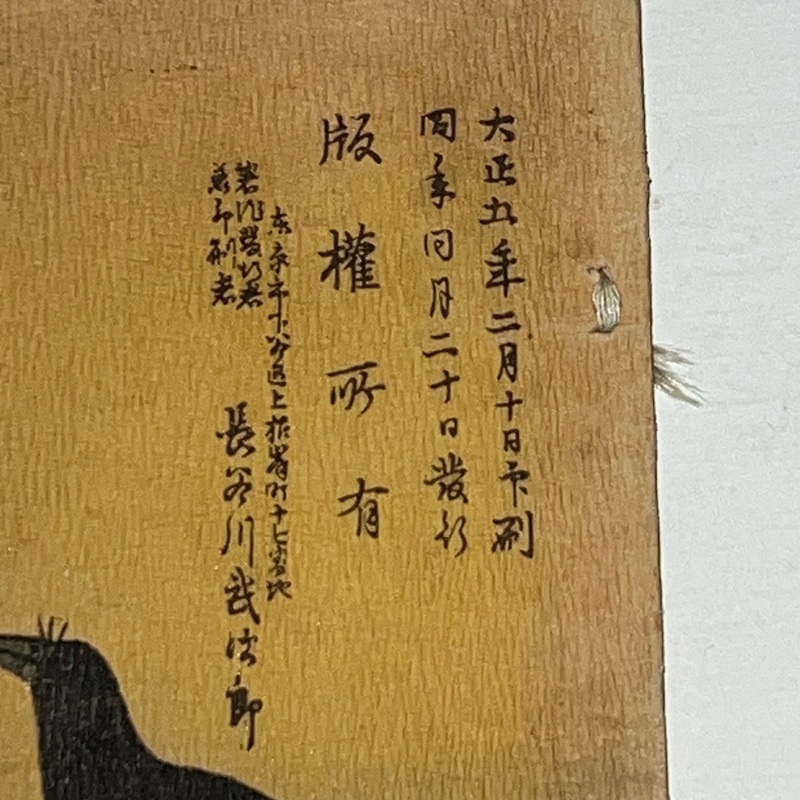 大正五年二月十日印刷
同年同月二十日發行
版權所有
東京市下谷區上根岸町十七番地
著作發行者
兼印刷者
長谷川武次郎